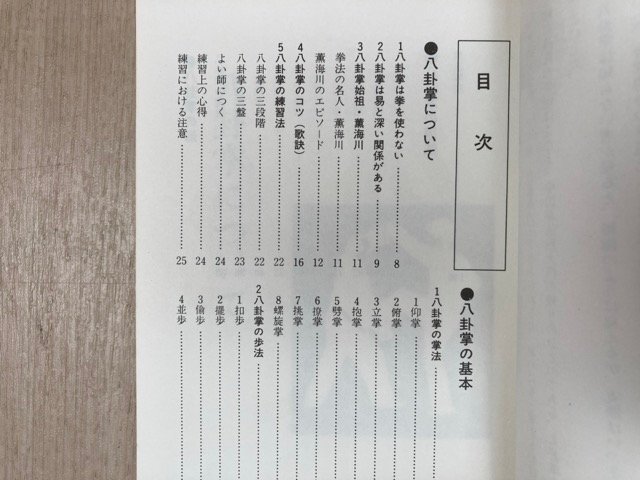 目次
●八卦掌について
1八卦掌は拳を使わない……8
2八卦掌は易と深い関係がある……9
3八卦掌始祖・董海川……11
拳法の名人・董海川……11
董海川のエピソード……12
4八卦掌のコツ（歌訣）……16
5八卦掌の練習法……22
八卦掌の三段階……22
八卦掌の三盤……23
よい師につく……24
練習上の心得……24
練習における注意……25
●八卦掌の基本
1八卦掌の掌法……
1仰掌……
2俯掌……
3立掌……
4抱掌……
5劈掌……
6撩掌……
7挑掌……
8螺旋掌……
2八卦掌の歩法……
1扣歩……
2擺歩……
3偷歩……
4並歩……